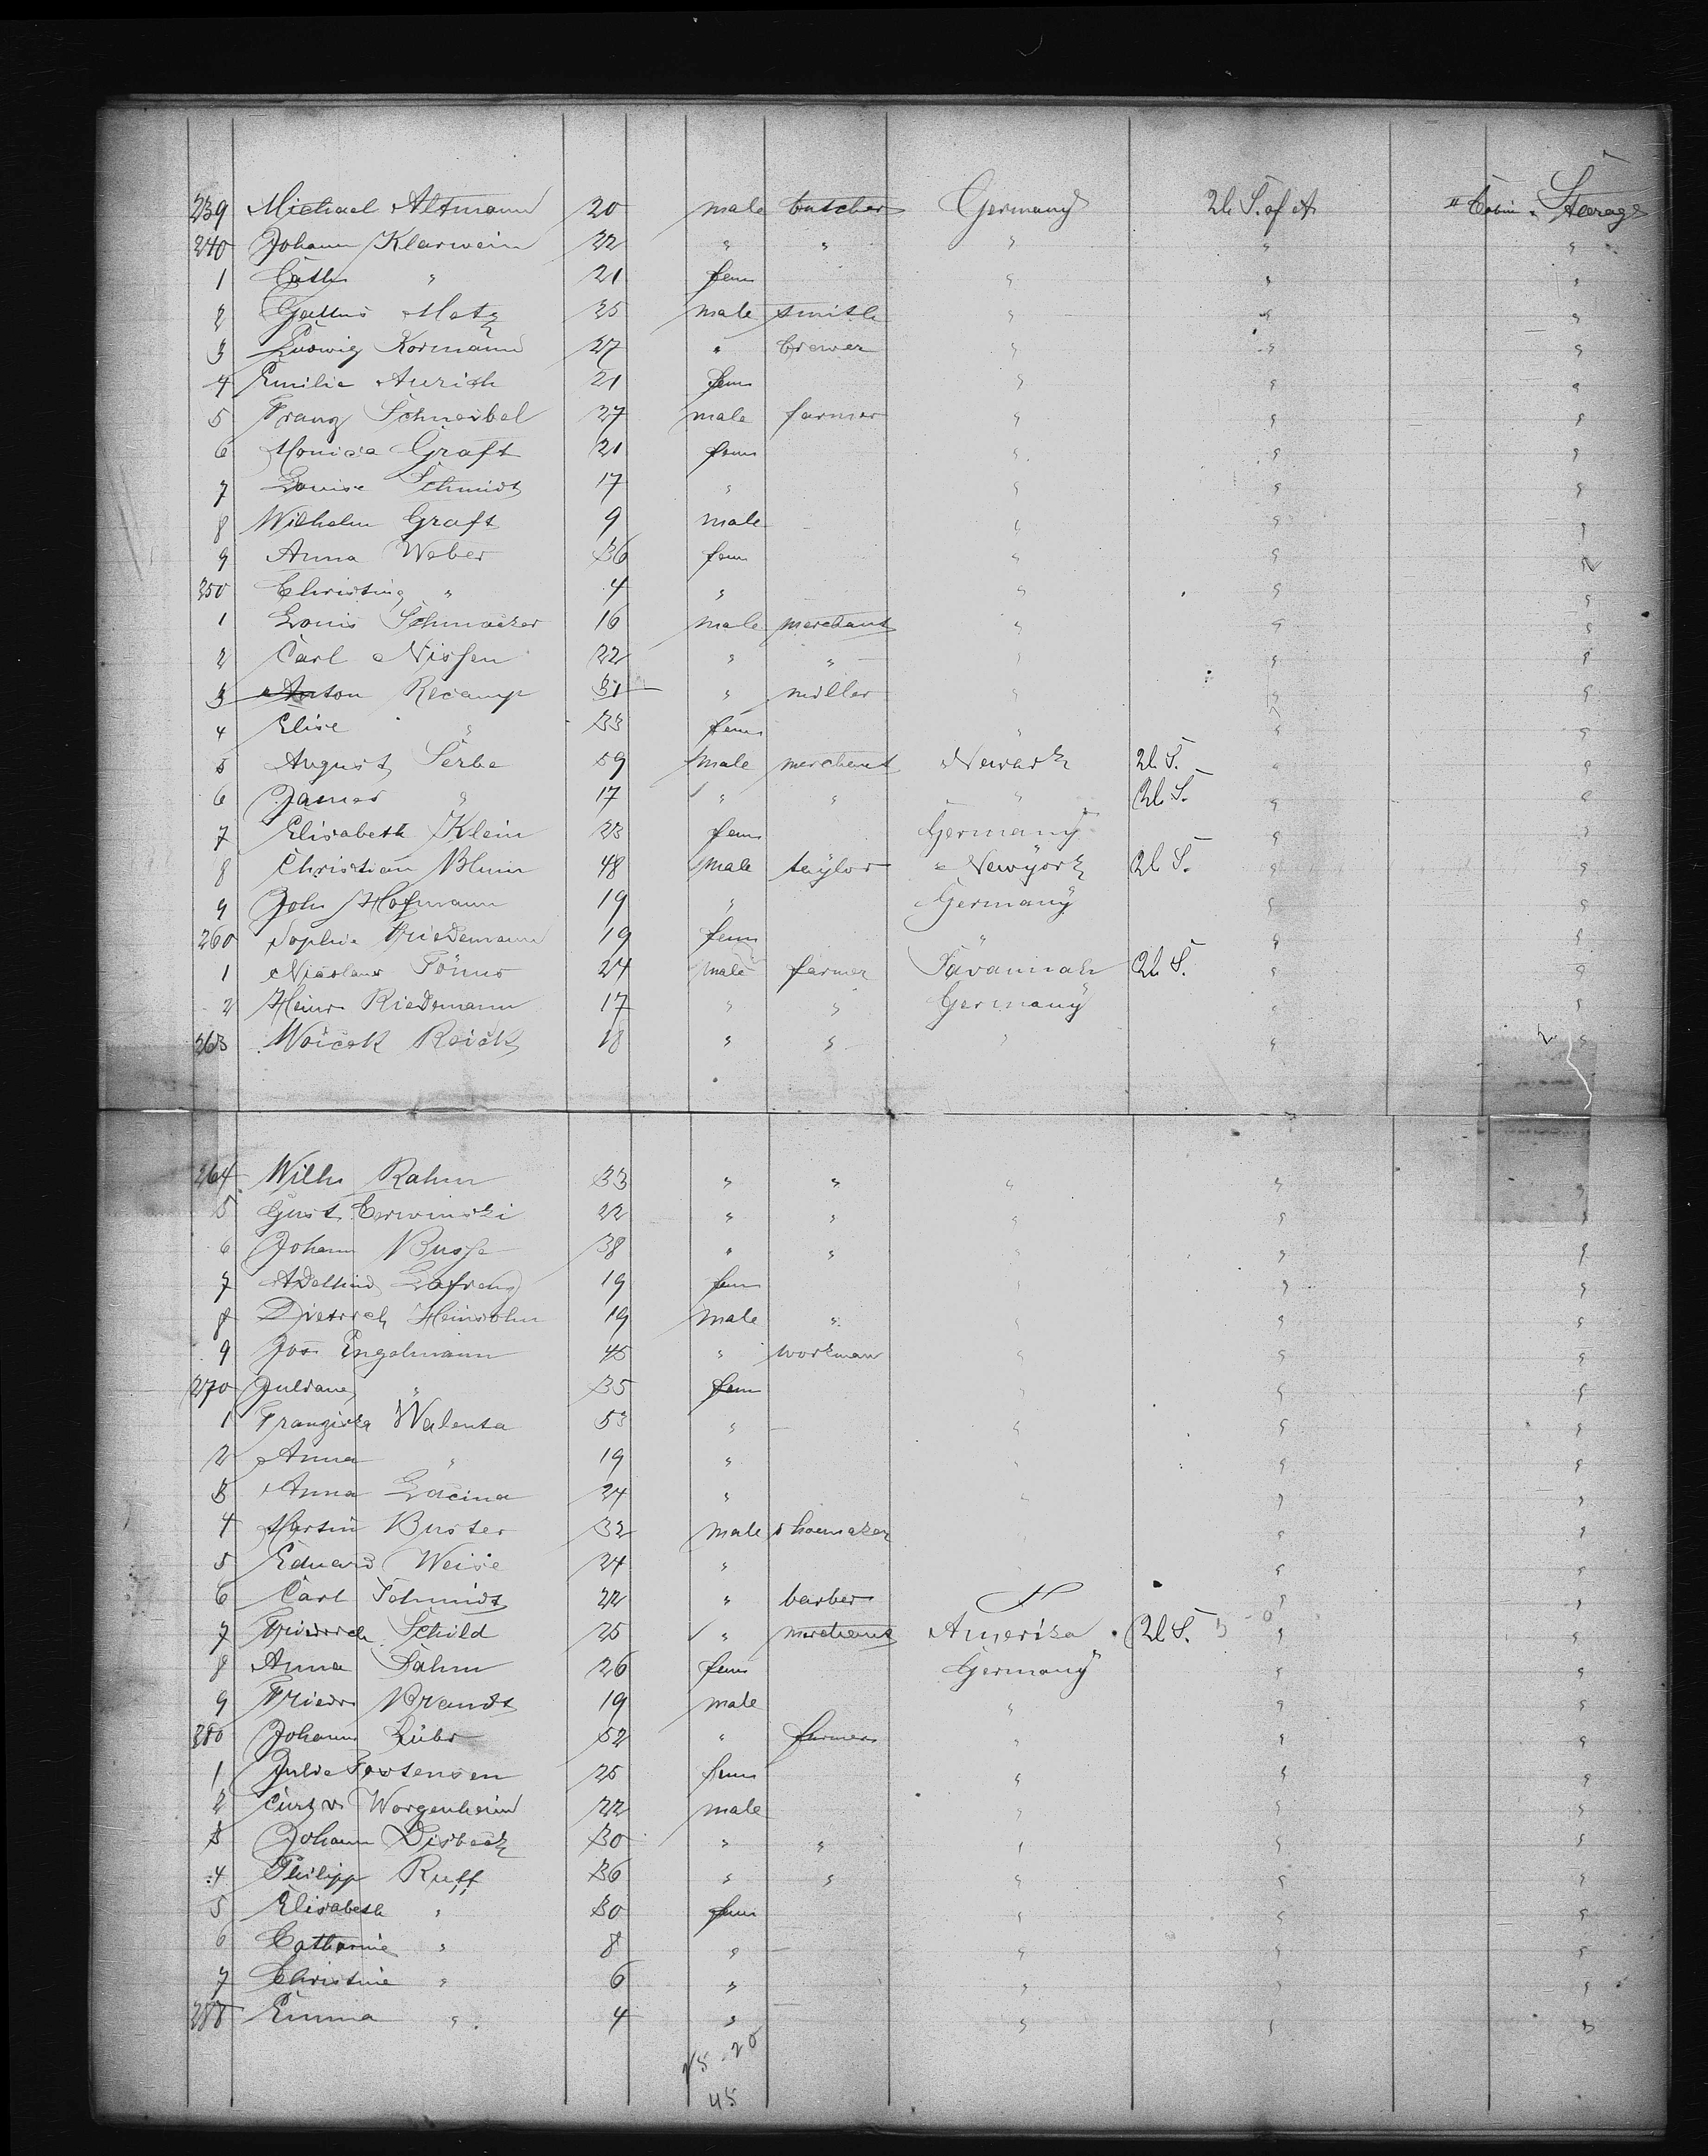 239 Michael Altmann 20 male butcher Germany U. S. of A " Cabin " Steerage
240 Johann Klarwein 22 " " " " "
1 Cath " 21 fem " " "
2 Gallus Motz 25 male smith " " "
3 Ludwig Kormann 27 " brewer " " "
4 Emilie Aurich 21 fem " " "
5 Franz Schneibel 27 male farmer " " "
6 Monica Graft 21 fem " " "
7 Louise Schmidt 17 " " " "
8 Wilhelm Graft 9 male " " "
9 Anna Weber 36 fem " " "
250 Christing " 4 " " " "
1 Louis Schmacker 16 male merchant " " "
2 Carl Nissen 22 " " " " "
3 Anton Recamp 31 " miller " " "
4 Elise " 33 fem " " "
5 August Serbe 59 male merchant Newark U. S. " "
6 James " 17 " " " U. S. " "
7 Elisabeth Klein 23 fem Germany " "
8 Christian Blum 48 male taylor Newyork U. S. " "
9 John Hofmann 19 " Germany " "
260 Sophie Friedemann 19 fem " " "
1 Nicolaus Tönns 24 male farmer Savannah U. S. " "
2 Heinr Riedemann 17 " " Germany " "
263 Woicek 18 " " " " "
264 Wilh Rahm 33 " " " " "
5 Gust 22 " " " " "
6 Johann Busse 38 " " " " "
7 Adelheid 19 fem " " "
8 Dietrich Heinsohn 19 male " " " "
9 Jos Engelmann 45 " workman " " "
270 Juliane " 35 fem " " "
1 Franziska Walenta 53 " " " "
2 Anna " 19 " " " "
3 Anna Lacina 24 " " " "
4 Martin Buster 32 male shoemaker " "
5 Eduard Weise 24 " " "
6 Carl Schmidt 22 " barber " "
7 Friedrich Schild 25 " merchant Amerika U. S. " "
8 Anna Dahm 26 fem Germany " "
9 Friedr Brandt 19 male " " "
280 Johann Lübr 52 " farmer " " "
1 Julie Tostensen 25 fem " " "
2 Curt v. Worgenheim 22 male " " "
3 Johann Disbeck 30 " " " " "
4 Philipp Ruff 36 " " " " "
5 Elisabeth " 30 fem " " "
6 Catharine " 8 " " " "
7 Christine " 6 " " " "
288 Emma " 4 " " " "
25 - 20
45